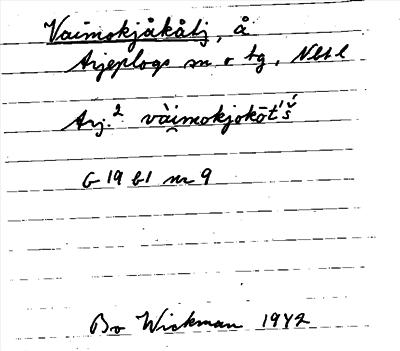 Vaimokjåkåtj, å
Arjeplogs sn o tg, Nbt l
Arj.² vàimokjokōt´š´
G 19 bl nr 9
Bo Wickman 1942